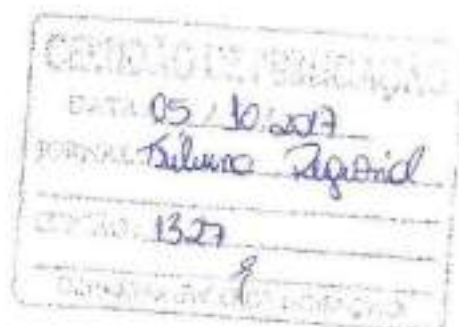 CERTIDÃO DE PUBLICAÇÃO
DATA: 05 / 10 / 2017
JORNAL: Tribuna Regional
EDIÇÃO: 1327